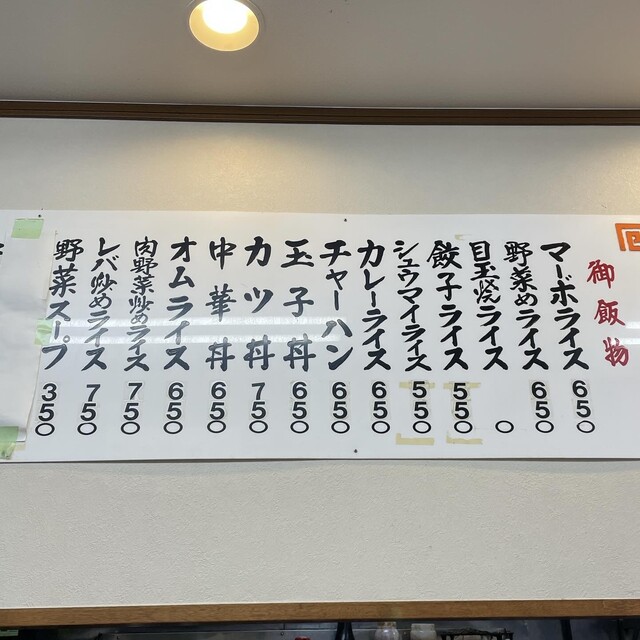 御飯物
マーボライス 650
野菜めライス 650
目玉焼ライス 0
餃子ライス 550
シュウマイライス 550
カレーライス 650
チャーハン 650
玉子丼 650
カツ丼 750
中華丼 650
オムライス 650
肉野菜炒めライス 750
レバ炒めライス 750
野菜スープ 350